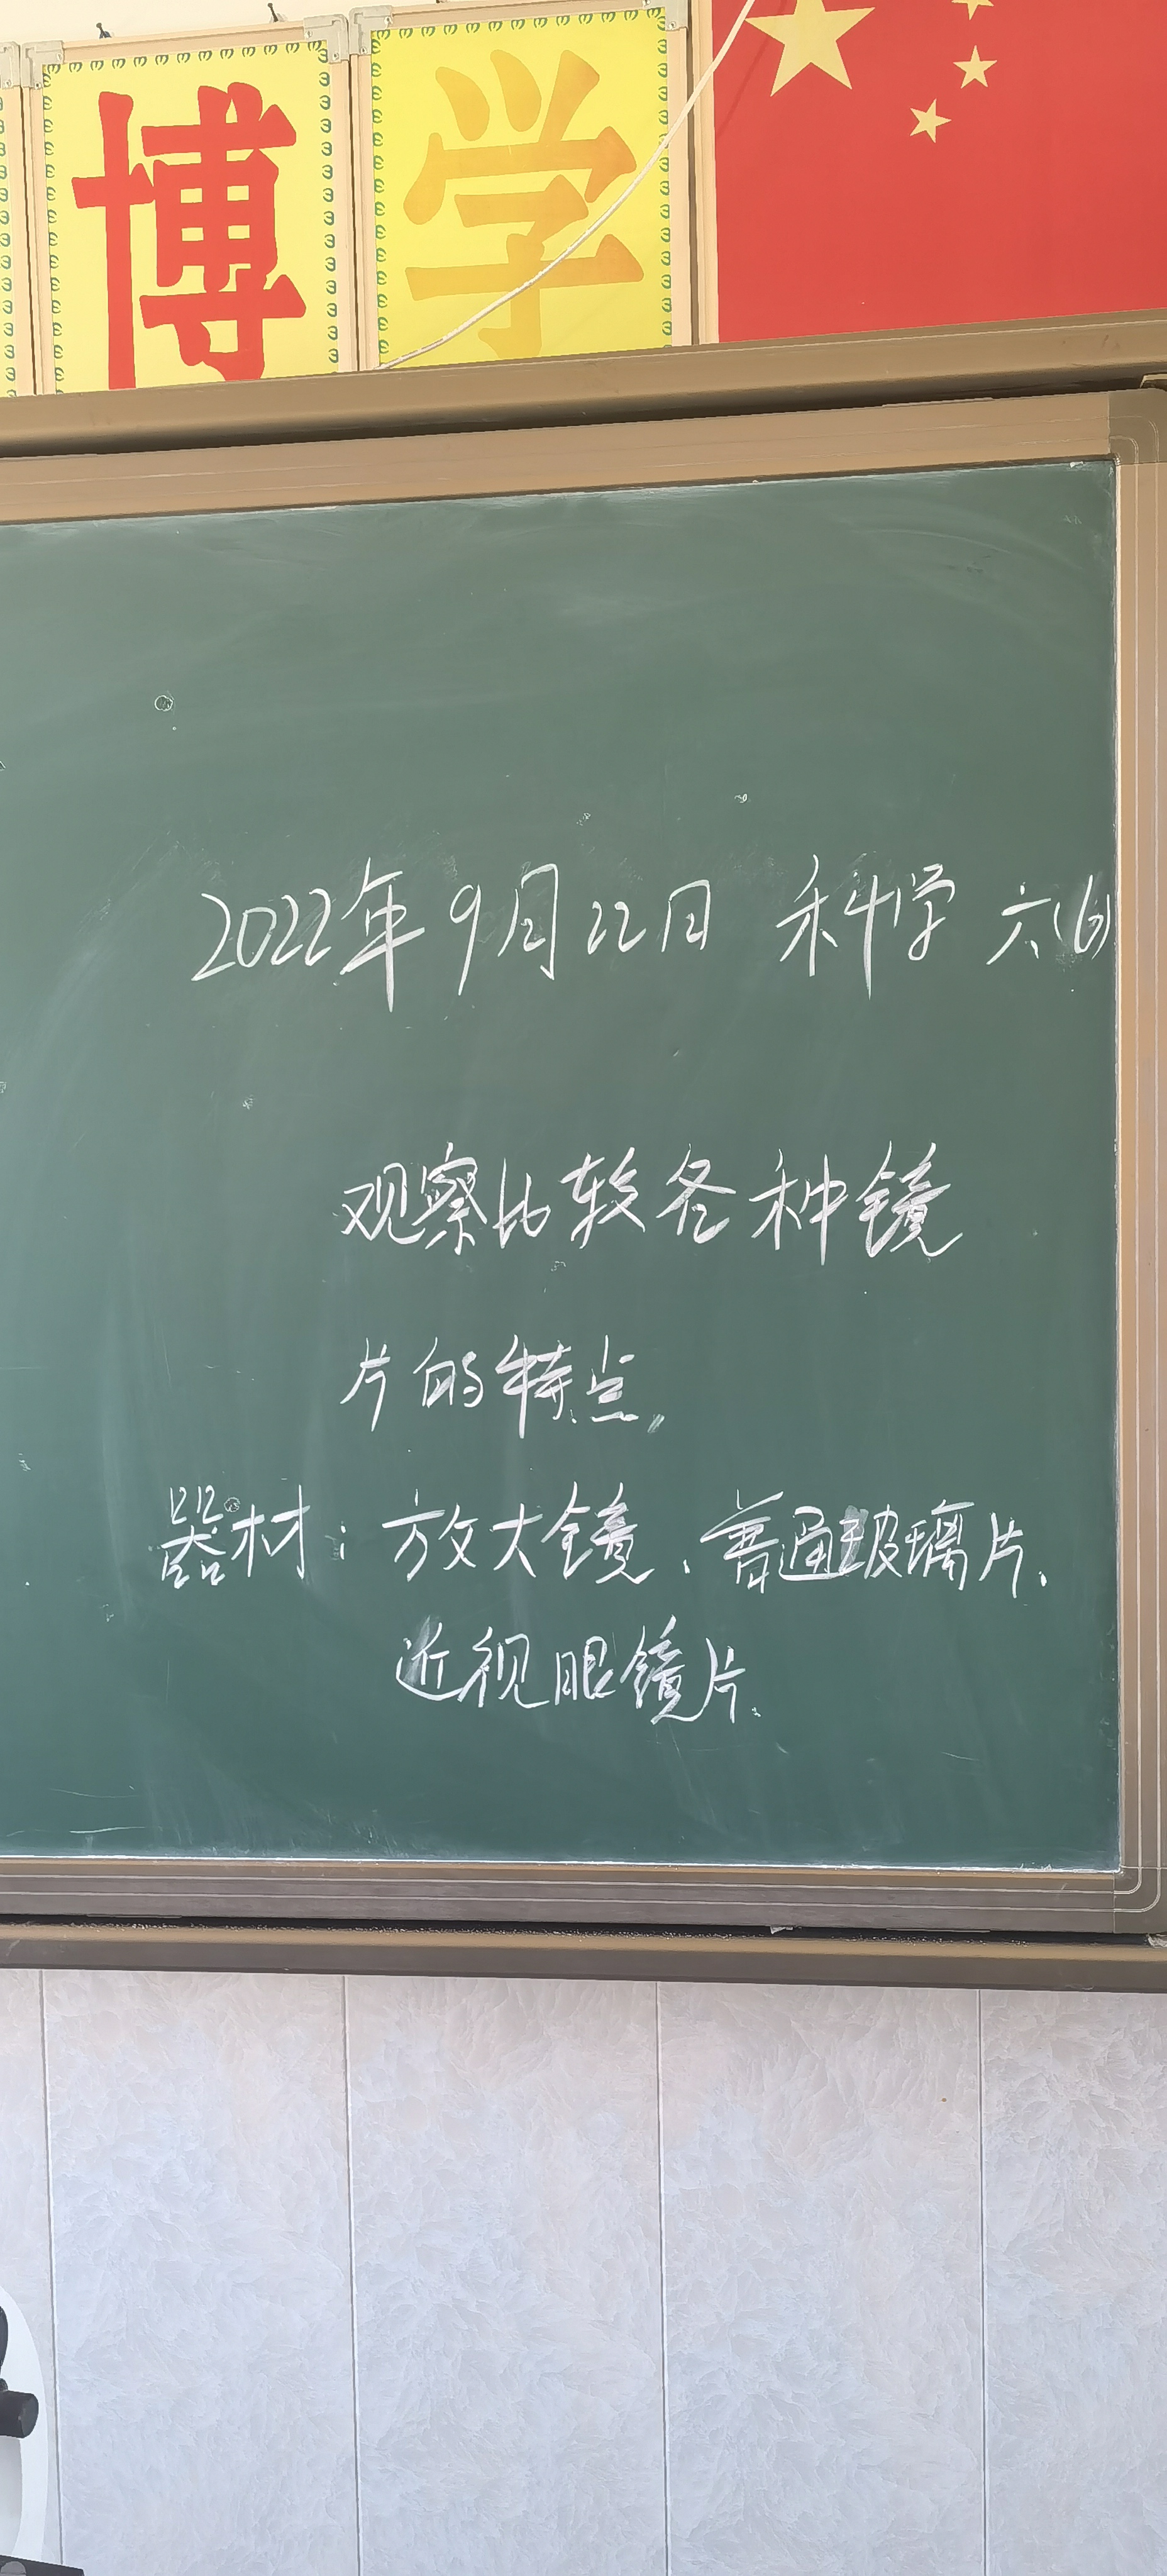 博 学
2022年9月22日 科学 六(6)
观察比较各种镜
片的特点,
器材:放大镜、普通玻璃片、
近视眼镜片.